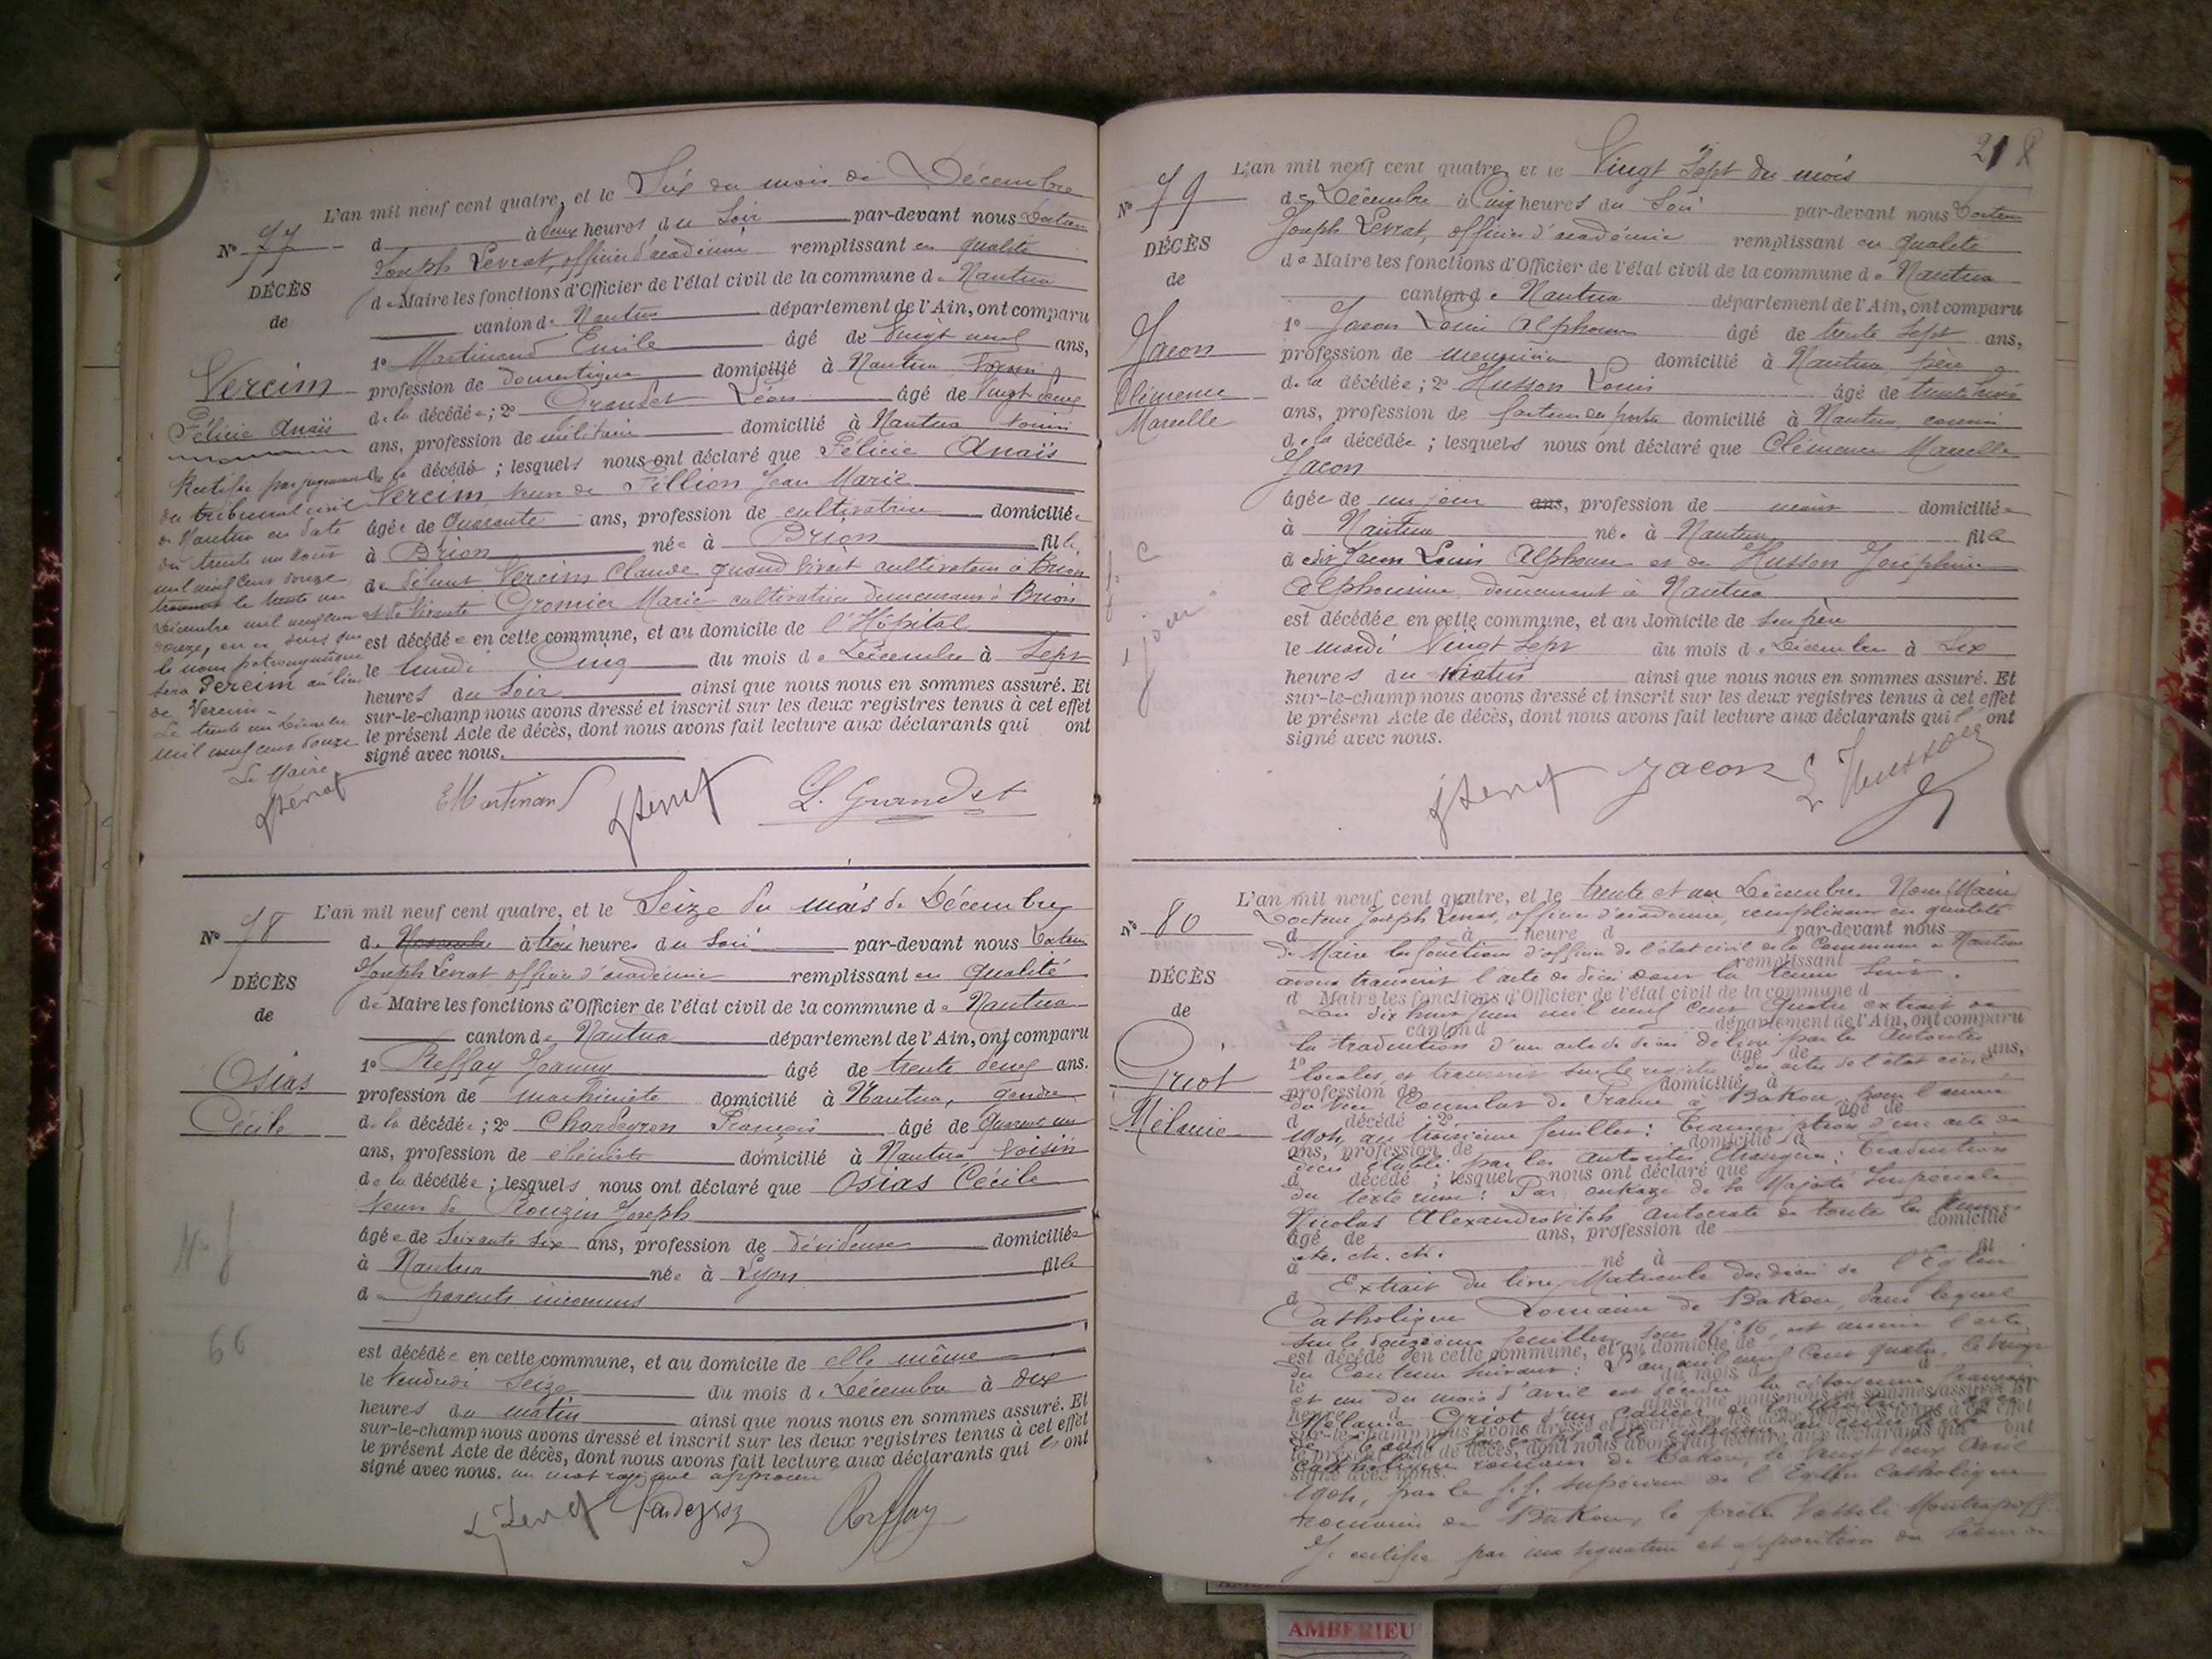 L'an mil neuf cent quatre, et le Six du mois de Décembre
No 77 d à deux heures du Soir par-devant nous Docteur
Joseph Levrat, officier d'académie remplissant en qualité
DÉCÈS
de Maire les fonctions d'Officier de l'état civil de la commune de Nantua
de
canton de Nantua département de l'Ain, ont comparu
1o Martinand Emile âgé de Vingt neuf ans,
Vercim
profession de domestique domicilié à Nantua voisin
de la décédée; 2o Grandet Léon âgé de Vingt deux
Félicie Anaïs
ans, profession de militaire domicilié à Nantua voisin
de la décédé; lesquels nous ont déclaré que Félicie Anaïs
Vercim veuve de Fillion Jean Marie
âgée de Quarante ans, profession de cultivatrice domiciliée
à Brion née à Brion fille
de défunt Vercim Claude quand vivait cultivateur à Brion
et de vivante Gromier Marie cultivatrice demeurant à Brion
est décédée en cette commune, et au domicile de l'Hôpital
le lundi Cinq du mois de Décembre à Sept
heures du Soir ainsi que nous nous en sommes assuré. Et
sur-le-champ nous avons dressé et inscrit sur les deux registres tenus à cet effet
le présent Acte de décès, dont nous avons fait lecture aux déclarants qui ont
signé avec nous.
Rectifié par jugement
du tribunal civil
de Nantua en date
du trente un Aout
mil neuf cent douze
le trente un
Décembre mil neuf cent
douze, en ce sens que
le nom patronymique
sera Percim au lieu
de Vercim
Le trente un Décembre
mil neuf cent douze
Le Maire
JLevrat
EMartinand JLevrat L. Grandet
L'an mil neuf cent quatre, et le Seize du mois de Décembre
No 78 de Novembre à trois heures du Soir par-devant nous Docteur
Joseph Levrat, officier d'académie remplissant en qualité
DÉCÈS
de Maire les fonctions d'Officier de l'état civil de la commune de Nantua
de
canton de Nantua département de l'Ain, ont comparu
1o Reffay Joanny âgé de trente deux ans.
Osias
profession de machiniste domicilié à Nantua, gendre
Cécile
de la décédée; 2o Chardeyron François âgé de Quarante un
ans, profession de ébéniste domicilié à Nantua Voisin
de la décédée; lesquels nous ont déclaré que Osias Cécile
Veuve de Rouzin Joseph
âgée de Soixante six ans, profession de dévideuse domiciliée
à Nantua née à Lyon fille
de parents inconnus
66
est décédée en cette commune, et au domicile de elle même
le Vendredi Seize du mois de Décembre à dix
heures du matin ainsi que nous nous en sommes assuré. Et
sur-le-champ nous avons dressé et inscrit sur les deux registres tenus à cet effet
le présent Acte de décès, dont nous avons fait lecture aux déclarants qui ont
signé avec nous. un mot rayé nul approuvé
JLevrat Reffay
218
L'an mil neuf cent quatre, et le Vingt Sept du mois
No 79 de Décembre à Cinq heures du Soir par-devant nous Docteur
Joseph Levrat, officier d'académie remplissant en qualité
DÉCÈS
de Maire les fonctions d'Officier de l'état civil de la commune de Nantua
de
canton de Nantua département de l'Ain, ont comparu
1o Jacon Louis Alphonse âgé de trente sept ans,
Jacon
profession de menuisier domicilié à Nantua, père
Clémence
de la décédée; 2o Husson Louis âgé de trente huit
Marcelle
ans, profession de facteur des postes domicilié à Nantua, cousin
de la décédée; lesquels nous ont déclaré que Clémence Marcelle
Jacon
âgée de un jour ans, profession de domiciliée
à Nantua née à Nantua fille
de dit Jacon Louis Alphonse et de Husson Joséphine
Alphonsine, demeurant à Nantua
1 jour
est décédée en cette commune, et au domicile de son père
le mardi Vingt Sept du mois de Décembre à Six
heures du Matin ainsi que nous nous en sommes assuré. Et
sur-le-champ nous avons dressé et inscrit sur les deux registres tenus à cet effet
le présent Acte de décès, dont nous avons fait lecture aux déclarants qui ont
signé avec nous.
JLevrat Jacon L Husson
L'an mil neuf cent quatre, et le trente et un Décembre Nous Maire
No 80
Docteur Joseph Levrat, officier d'académie, remplissant en qualité
d à heure d par-devant nous
de Maire les fonctions d'officier de l'état civil de la Commune de Nantua
remplissant
DÉCÈS
avons transcrit l'acte de décès dont la teneur suit.
d Maire les fonctions d'Officier de l'état civil de la commune d
de
Du dix huit juin mil neuf cent quatre extrait de
canton d département de l'Ain, ont comparu
la traduction d'un acte de décès délivré par les Autorités
1o âgé de ans,
Griot
locales, et transcrit sur le registre des actes de l'état civil
profession de domicilié à
Mélanie
du Vice Consulat de France à Bakou, pour l'année
d décédé 2o âgé de
1904, au troisième feuillet: Transcription d'un acte de
ans, profession de domicilié à
décès établi par les autorités étrangères; Traduction
d décédé; lesquel nous ont déclaré que
du texte russe: Par oukaze de Sa Majesté Impériale
Nicolas Alexandrovitch autocrate de toutes les Russies
âgé de ans, profession de domicilié
etc. etc. etc.
à né à fil
Extrait du livre Matricule des décès de l'Eglise
d
Catholique Romaine de Bakou, dans lequel
sur le douzième feuillet, sous No 16, est inscrit l'acte
est décédé en cette commune, et au domicile de
du Contenu suivant: L'an mil neuf cent quatre, le vingt
le du mois d à
et un du mois d'avril est décédée la citoyenne française
heure d ainsi que nous nous en sommes assuré. Et
Mélanie Griot d'un cancer de
sur-le-champ nous avons dressé et inscrit sur les deux registres tenus à cet effet
le présent Acte de décès, dont nous avons fait lecture aux déclarants qui ont
catholique romain de Bakou, le vingt deux Avril
signé avec nous.
1904, par le f.f. supérieur de l'Eglise Catholique
romaine de Bakou, le prêtre
Je certifie par ma signature et apposition du sceau de
AMBERIEU